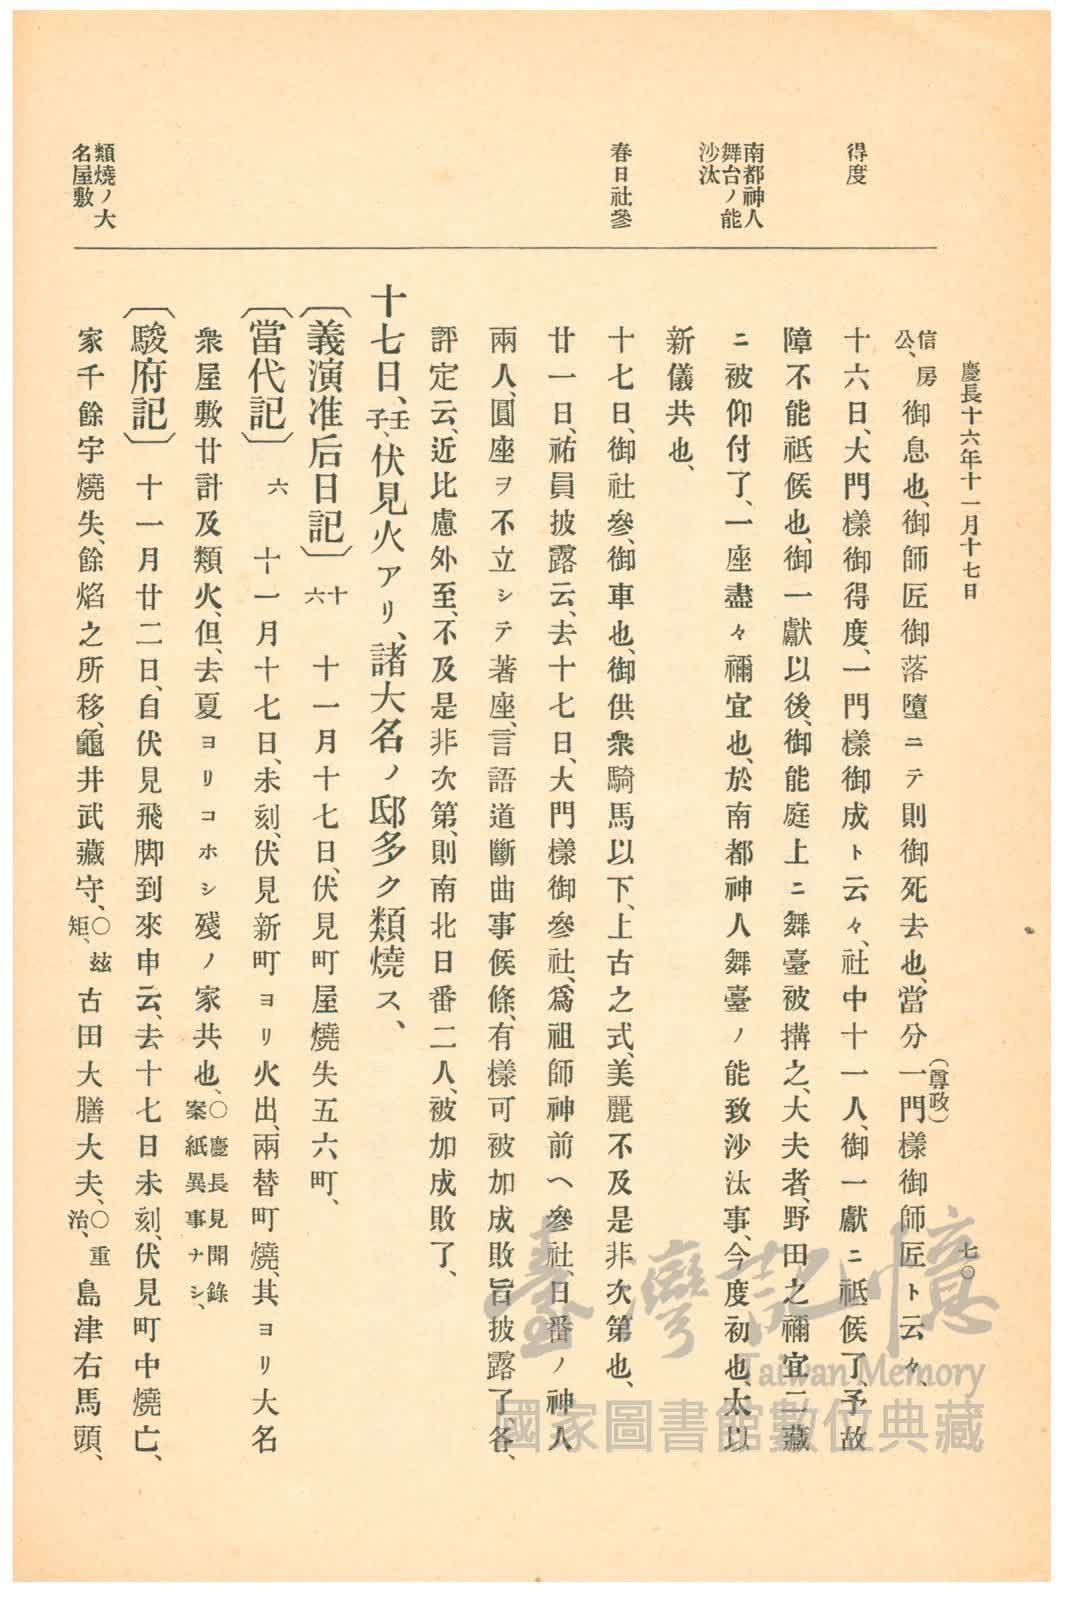 慶長十六年十一月十七日
七〇
得度
南都神人
舞台ノ能
沙汰
春日社參
類燒ノ大
名屋敷
信房公、御息也、御師匠御落墮ニテ則御死去也、當分一門樣(尊政)御師匠ト云々、
十六日、大門樣御得度、一門樣御成ト云々、社中十一人、御一獻ニ祗候了、予故
障不能祗候也、御一獻以後、御能庭上ニ舞臺被搆之、大夫者、野田之禰宜二藏
ニ被仰付了、一座盡々禰宜也、於南都神人舞臺ノ能致沙汰事、今度初也、太以
新儀共也、
十七日、御社參、御車也、御供衆騎馬以下、上古之式、美麗不及是非次第也、
廿一日、祐員披露云、去十七日、大門樣御參社、爲祖師神前ヘ參社、日番ノ神人
兩人、圓座ヲ不立シテ著座、言語道斷曲事候條、有樣可被加成敗旨披露了、各、
評定云、近比慮外至、不及是非次第、則南北日番二人、被加成敗了、
十七日、壬子、伏見火アリ、諸大名ノ邸多ク類燒ス、
〔義演准后日記〕 十六 十一月十七日、伏見町屋燒失五六町、
〔當代記〕 六 十一月十七日、未刻、伏見新町ヨリ火出、兩替町燒、其ヨリ大名
衆屋敷廿計及類火、但、去夏ヨリコホシ殘ノ家共也、○慶長見聞錄案紙異事ナシ、
〔駿府記〕 十一月廿二日、自伏見飛脚到來申云、去十七日未刻、伏見町中燒亡、
家千餘宇燒失、餘焰之所移、龜井武藏守、○玆矩、古田大膳大夫、○重治、島津右馬頭、
臺灣記憶
Taiwan Memory
國家圖書館數位典藏